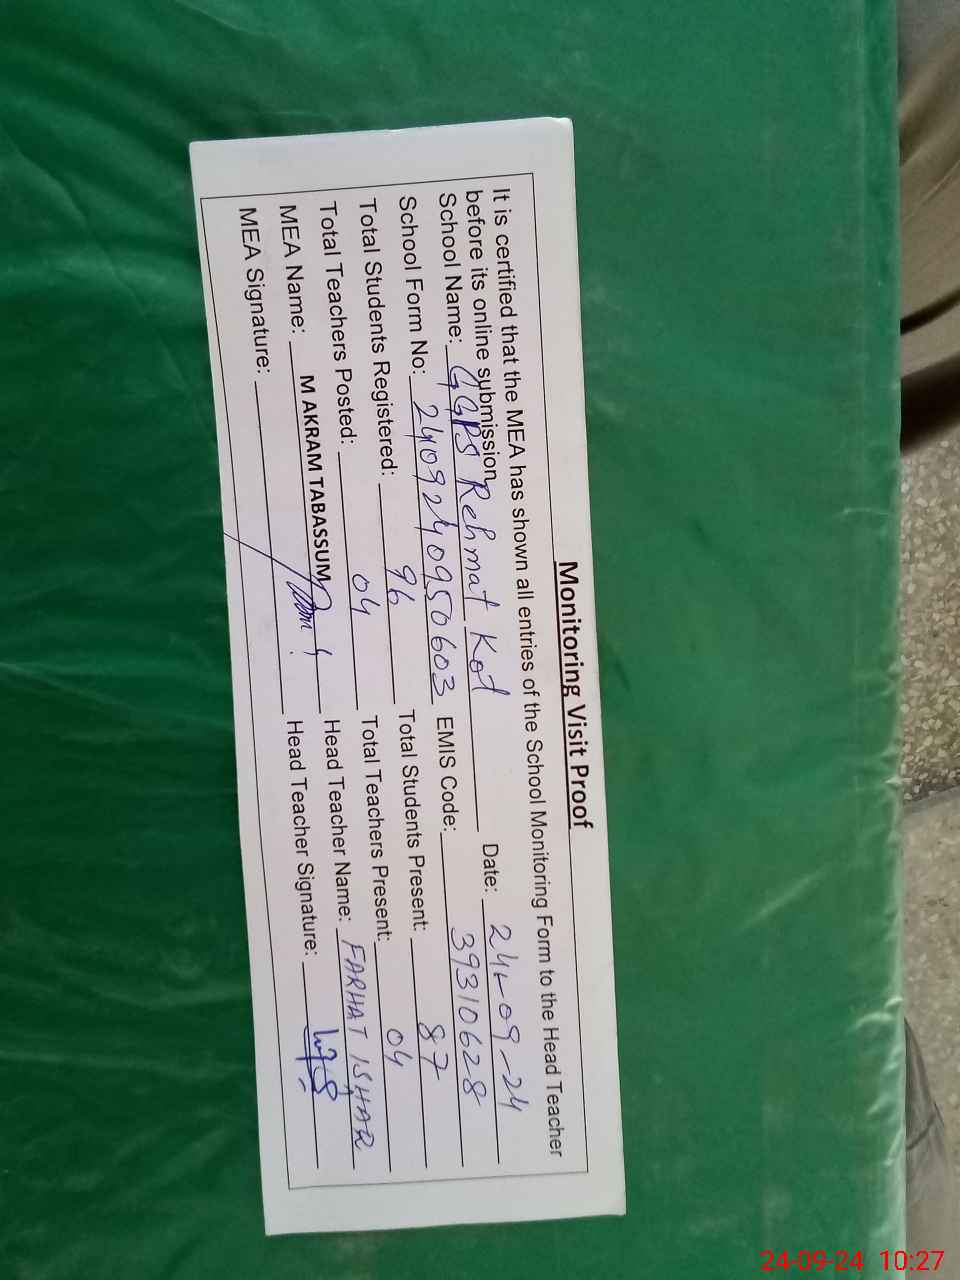 Monitoring Visit Proof
It is certified that the MEA has shown all entries of the School Monitoring Form to the Head Teacher
before its online submission.
School Name: GGPS Rehmat Kot Date: 24-09-24
School Form No: 2409240950603 EMIS Code: 39310628
Total Students Registered: 96 Total Students Present: 87
Total Teachers Posted: 04 Total Teachers Present: 04
MEA Name: M AKRAM TABASSUM Head Teacher Name: FARHAT ISHAQ
MEA Signature: Head Teacher Signature:
24-09-24 10:27